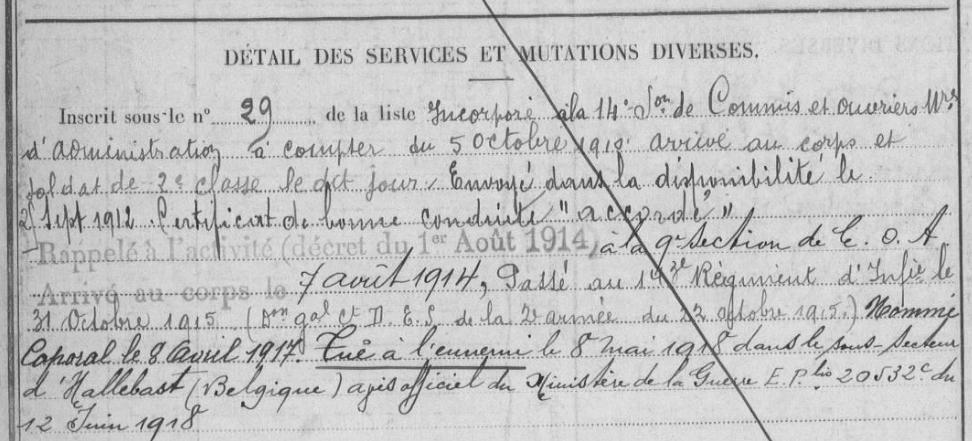 DÉTAIL DES SERVICES ET MUTATIONS DIVERSES.
Inscrit sous le n° 29 de la liste Incorporé à la 14e Son de Commis et ouvriers Mres
d'administration à compter du 5 Octobre arrivé au corps et
soldat de 2e classe le dit jour. Envoyé dans la disponibilité le
Sept 1912. Certificat de bonne conduite "accordé"
Rappelé à l'activité (décret du 1er Août 1914), à la 9e Section de C. O. A
Arrivé au corps le 7 août 1914, Passé au Régiment d'Infie le
31 Octobre 1915 (Don gal Ct D. E. S. de la 2e armée du 22 octobre 1915.) Nommé
Caporal le 8 Avril 1917. Tué à l'ennemi le 8 mai 1918 dans le sous-secteur
d'Hallebast (Belgique) avis officiel du Ministère de la Guerre E. P. 20532c du
12 Juin 1918